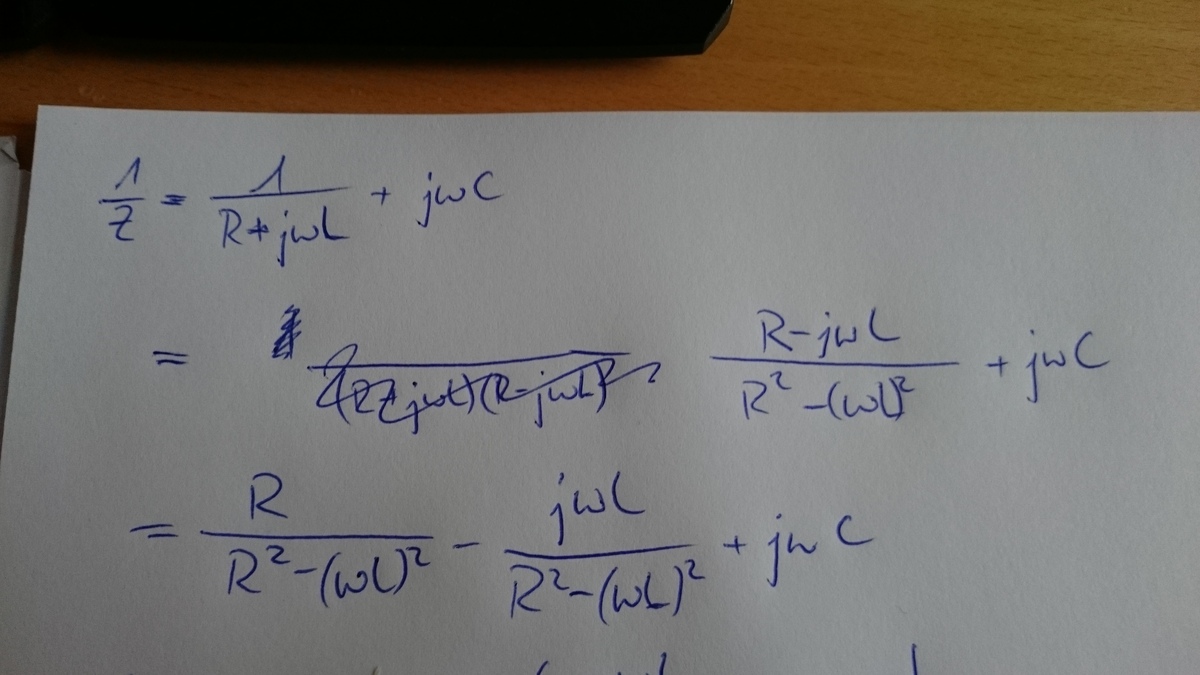 1/Z = 1/(R+jωL) + jωC
= (R-jωL)/(R²-(ωL)²) + jωC
= R/(R²-(ωL)²) - jωL/(R²-(ωL)²) + jωC